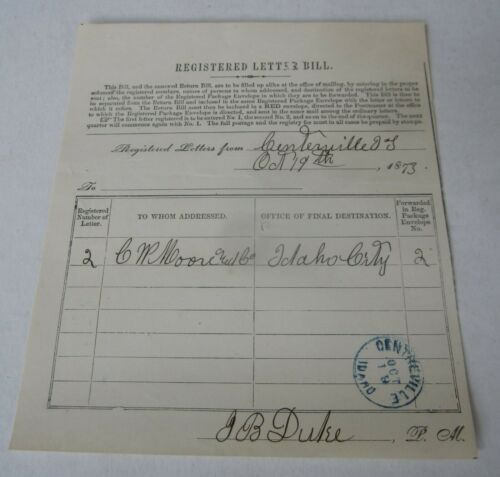 REGISTERED LETTER BILL.
This Bill, and the annexed Return Bill, are to be filled up alike at the office of mailing, by entering in the proper
columns the registered numbers, names of persons to whom addressed, and destination of the registered letters to be
sent; also, the number of the Registered Package Envelope in which they are to be forwarded. This Bill is then to
be separated from the Return Bill and inclosed in the same Registered Package Envelope with the letter or letters to
which it refers. The Return Bill must then be inclosed in a RED envelope, directed to the Postmaster at the office to
which the Registered Package Envelope is directed, and sent in the same mail among the ordinary letters.
The first letter registered is to be entered No. 1, the second No. 2, and so on to the end of the quarter. The next
quarter will commence again with No. 1. The full postage and the registry fee must in all cases be prepaid by stamps.
Registered Letters from Centerville I T
Oct 19th, 1873.
To
Registered Number of Letter.
TO WHOM ADDRESSED.
OFFICE OF FINAL DESTINATION.
Forwarded in Reg. Package Envelope No.
2 C W Moore and Co Idaho City 2
CENTREVILLE
OCT
19
IDAHO
J B Duke, P. M.